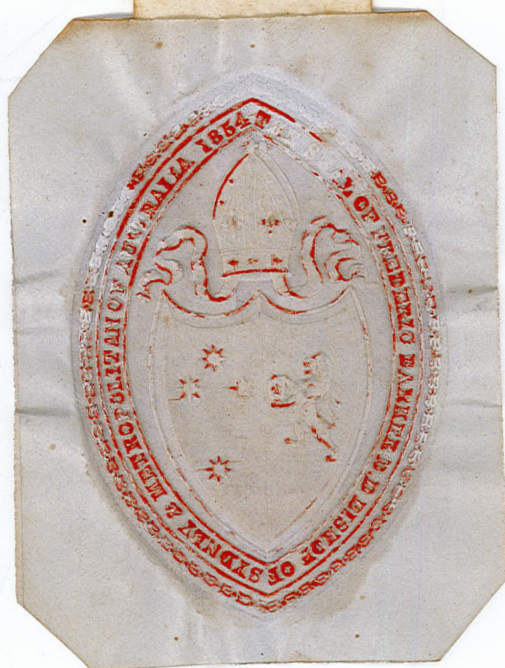 THE SEAL OF FREDERIC BARKER D.D BISHOP OF SYDNEY & METROPOLITAN OF AUSTRALIA 1854